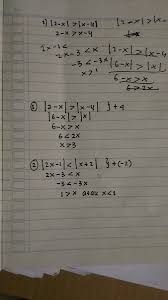 1) |2-x| > |x-4|
2-x > x-4
|2-x| > |x-4|
2x-1 <
-2x-3 < x
-3 < -3x
x > 1
|2-x| > |x-4|
|6-x| > |x|
6-x > x
6 > 2x
① |2-x| > |x-4| } + 4
|6-x| > |x|
6-x > x
6 < 2x
x > 3
② |2x-1| < |x+2| } + (-2)
2x-3 < x
-3 < -3x
1 > x atau x < 1